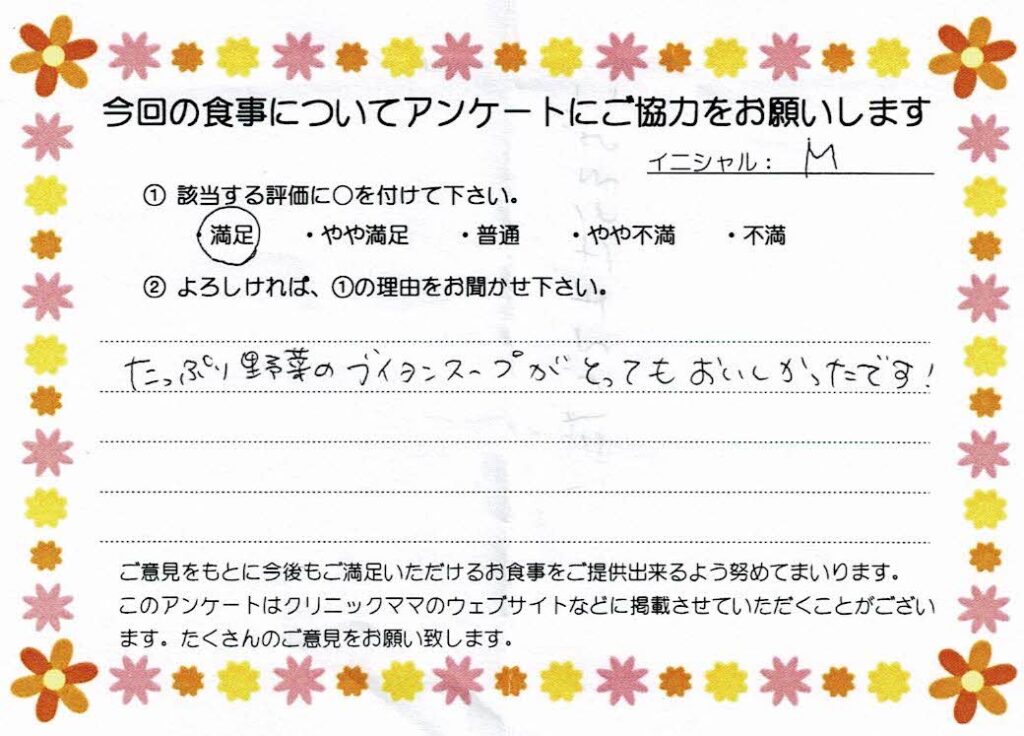 今回の食事についてアンケートにご協力をお願いします
イニシャル： M
① 該当する評価に○を付けて下さい。
・満足 ・やや満足 ・普通 ・やや不満 ・不満
② よろしければ、①の理由をお聞かせ下さい。
たっぷり野菜のブイヨンスープがとってもおいしかったです!
ご意見をもとに今後もご満足いただけるお食事をご提供出来るよう努めてまいります。
このアンケートはクリニックママのウェブサイトなどに掲載させていただくことがござい
ます。たくさんのご意見をお願い致します。